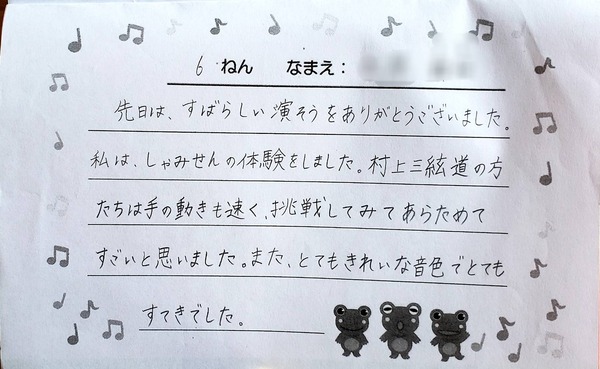 6 ねん なまえ：
先日は、すばらしい演そうをありがとうございました。
私は、しゃみせんの体験をしました。村上三絃道の方
たちは手の動きも速く、挑戦してみてあらためて
すごいと思いました。また、とてもきれいな音色でとても
すてきでした。